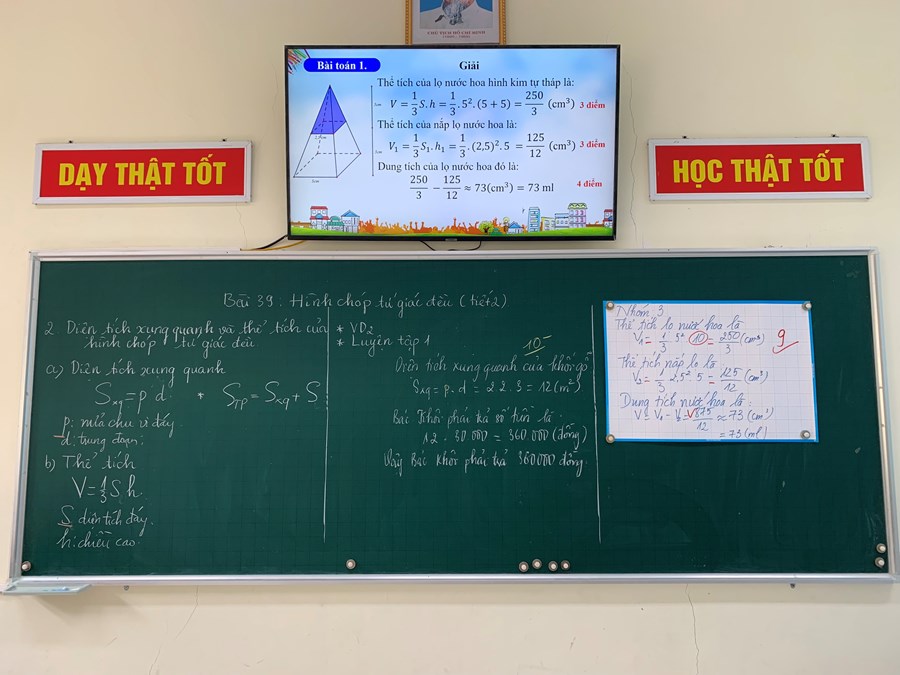 CHỦ TỊCH HỒ CHÍ MINH
Bài toán 1.
Giải
Thể tích của lọ nước hoa hình kim tự tháp là:
V = 1/3 S.h = 1/3 . 5². (5 + 5) = 250/3 (cm³) 3 điểm
Thể tích của nắp lọ nước hoa là:
V₁ = 1/3 S₁.h₁ = 1/3 . (2,5)². 5 = 125/12 (cm³) 3 điểm
Dung tích của lọ nước hoa đó là:
250/3 − 125/12 ≈ 73(cm³) = 73 ml 4 điểm
DẠY THẬT TỐT
HỌC THẬT TỐT
Bài 39: Hình chóp tứ giác đều (tiết 2)
2. Diện tích xung quanh và thể tích của
hình chóp tứ giác đều
a) Diện tích xung quanh
Sxq = p.d * STP = Sxq + S
p: nửa chu vi đáy.
d: trung đoạn:
b) Thể tích
V = 1/3 S.h
S diện tích đáy.
h: chiều cao.
* VD2
* Luyện tập 1
10
Diện tích xung quanh của khối gỗ
Sxq = p.d = 2.2.3 = 12(m²)
Bác Khôi phải trả số tiền là:
12 . 30 000 = 360 000 (đồng)
Vậy Bác Khôi phải trả 360 000 đồng.
Nhóm 3
Thể tích lọ nước hoa là
V₁ = 1/3 . 5² . 10 = 250/3 (cm³)
9
Thể tích nắp lọ là
V₂ = 1/3 . 2,5² . 5 = 125/12 (cm³)
Dung tích nước hoa là:
V = V₁ - V₂ = 875/12 ≈ 73 (cm³)
= 73 (ml)